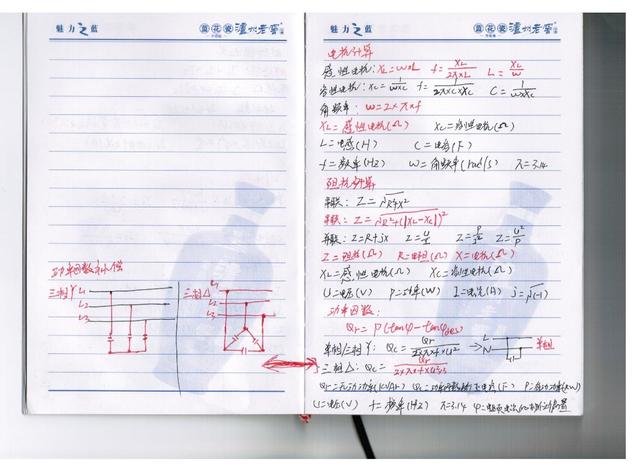 魅力之蓝
蓝花瓷 泸州老窖
功率因数补偿
三相Y L1
L2
L3
三相△ L1
L2
L3
魅力之蓝
蓝花瓷 泸州老窖
电抗计算
感性电抗: XL=w×L f=XL/2×π×L L=XL/w
容性电抗: XC=1/w×C f=1/2×π×C×XC C=1/w×XC
角频率: w=2×π×f
XL=感性电抗(Ω) XC=容性电抗(Ω)
L=电感(H) C=电容(F)
f=频率(HZ) w=角频率(rad/s) π=3.14
阻抗计算
串联: Z=√R²+X²
串联: Z=√R²+(|XL-XC|)²
并联: Z=R+jX Z=U/I Z=P/I² Z=U²/P
Z=阻抗(Ω) R=电阻(Ω) X=电抗(Ω)
XL=感性电抗(Ω) XC=容性电抗(Ω)
U=电压(V) P=功率(W) I=电流(A) j=√(-1)
功率因数:
Qr=P(tanφ-tanφdes)
单相/三相Y: QC=Qr/2×π×f×U² L N 单相
三相△: QC=Qr/2×π×f×U²×3
Qr=无功功率(KVAR) P=有功功率(KW)
U=电压(V) f=频率(HZ) π=3.14